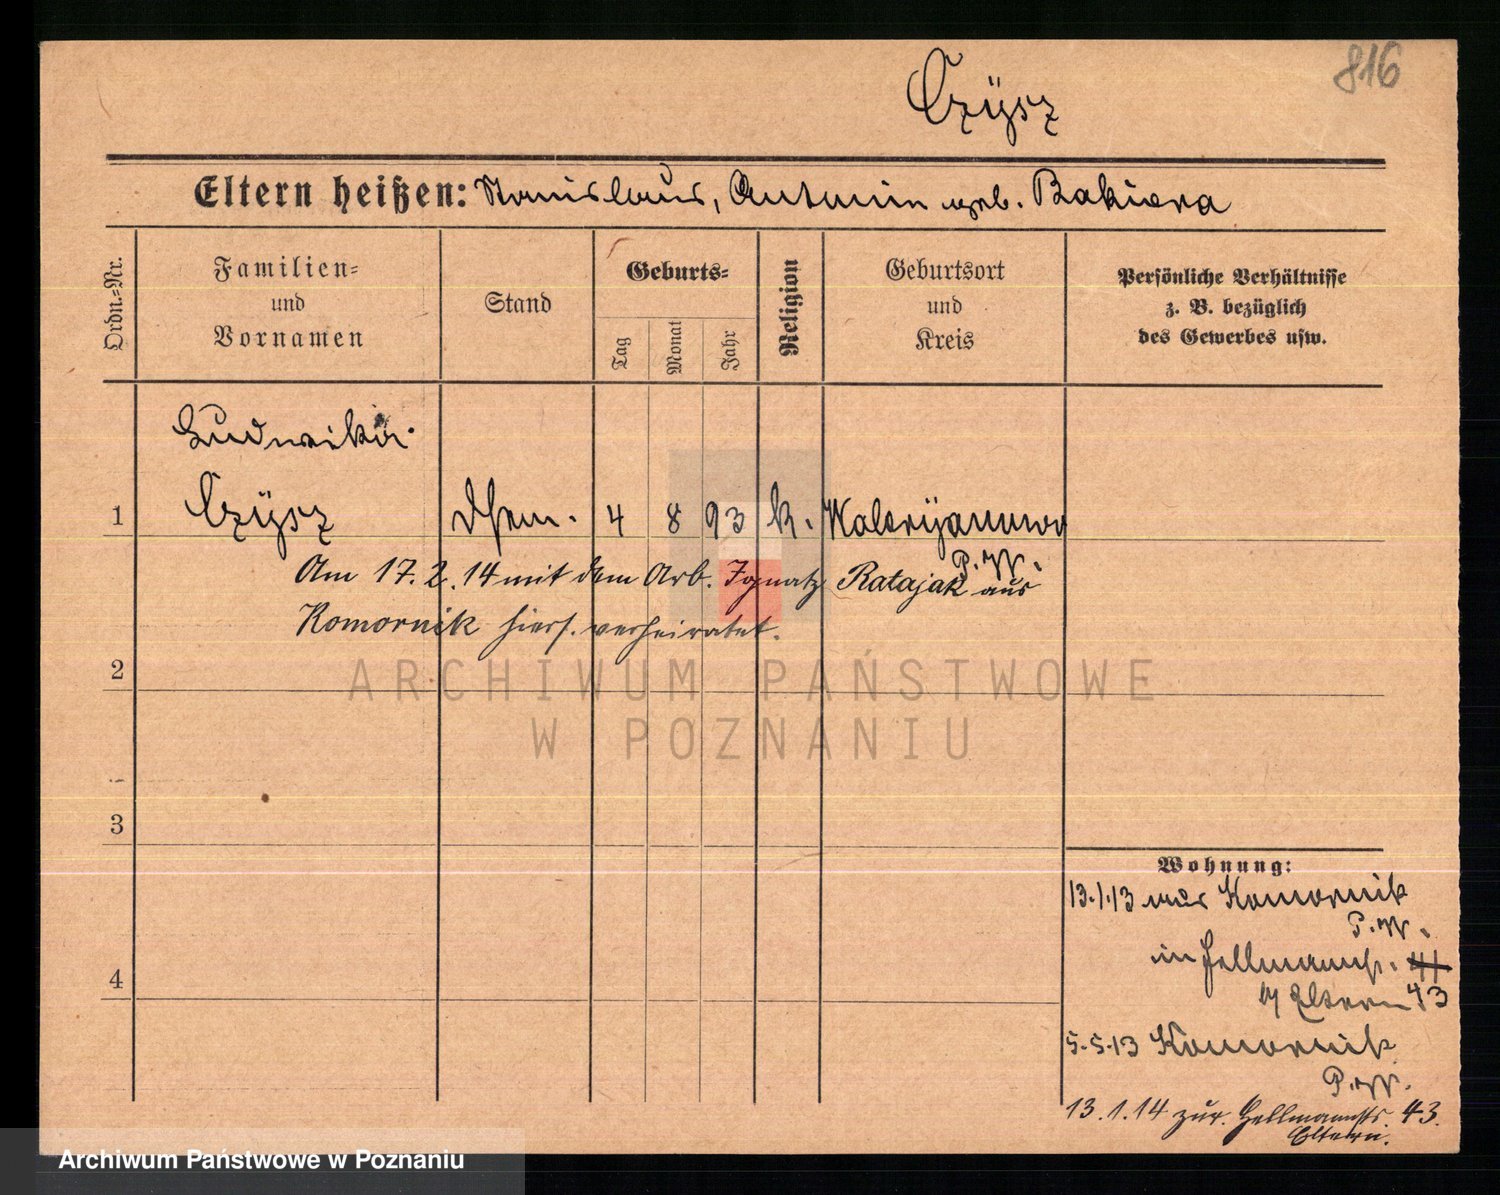 816
Czÿsz
Eltern heißen: Stanislaus, Antonin geb. Bakiera
Ordn.=Nr.
Familien=
und
Vornamen
Stand
Geburts=
Tag
Monat
Jahr
Religion
Geburtsort
und
Kreis
Persönliche Verhältnisse
z. B. bezüglich
des Gewerbes usw.
Ludwika
1 Czÿsz 4 8 93 k. Walerÿanowo
P.W.
Am 17.2.14 mit dem Arb. Ignatz Ratajak aus
Komornik hiers. verheiratet.
2
3
4
Wohnung:
13.1.13 aus Komornik
P.W.
in Hellmannstr. 41
Eltern 43
5.5.13 Komornik
P.W.
13.1.14 zur. Hellmannstr. 43.
Eltern.
ARCHIWUM PAŃSTWOWE
W POZNANIU
Archiwum Państwowe w Poznaniu